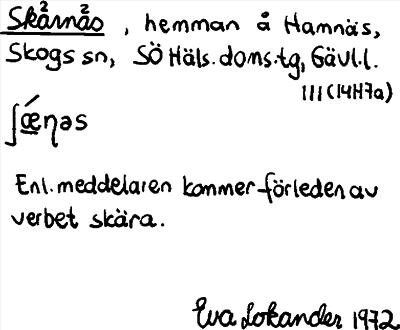 Skärnäs, hemman å Hamnäs,
Skogs sn, SÖ Häls. doms.tg, Gävl.l.
111 (14H7a)
ʃǽŋəs
Enl. meddelaren kommer förleden av
verbet skära.
Eva Lokander 1972